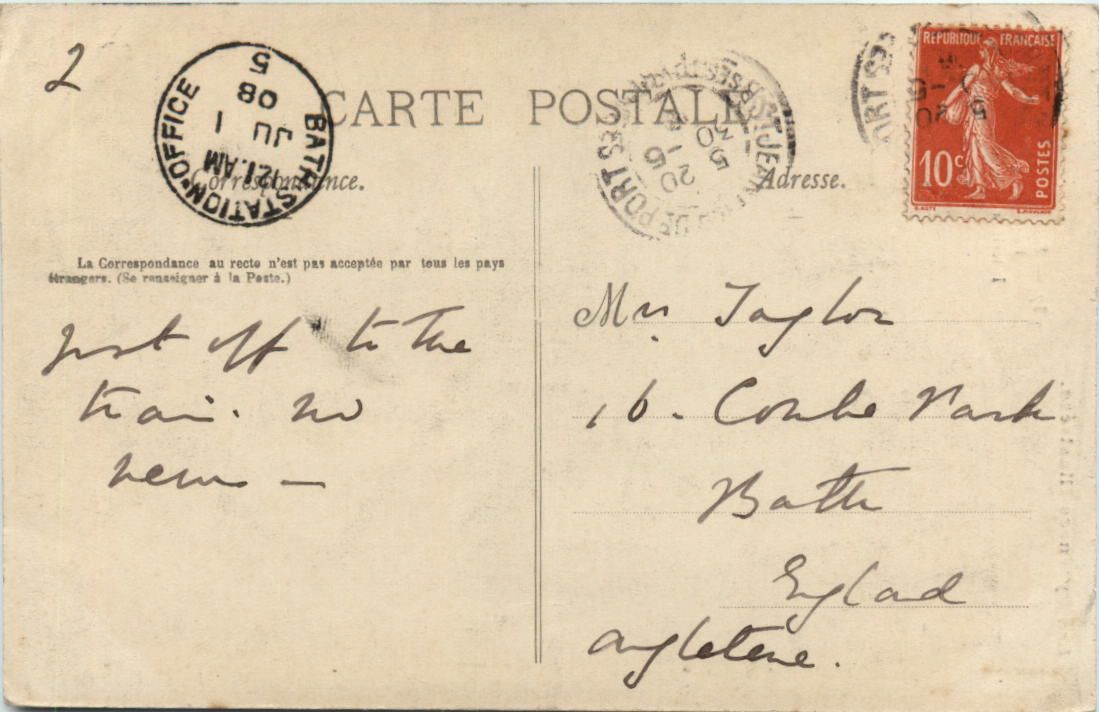 2
BATH·STATION·OFFICE
12 1.AM
JU 1
08
5
CARTE POSTALE
ST JEAN PIED DE PORT
20 5
5
REPUBLIQUE FRANÇAISE
10c
POSTES
Correspondance.
Adresse.
La Correspondance au recto n'est pas acceptée par tous les pays
étrangers. (Se renseigner à la Poste.)
Just off to the
train. No
news —
Mrs Taylor
16. Combe Park
Bath
England
Angleterre.